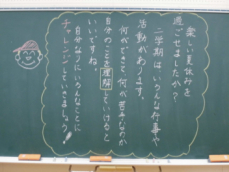 楽しい夏休みを
過ごせましたか?
二学期は、いろんな行事や
活動があります。
何ができて、何が苦手なのか
自分のことを理解していけると
いいですね。
自分なりにいろんなことに
チャレンジしていきましょう!